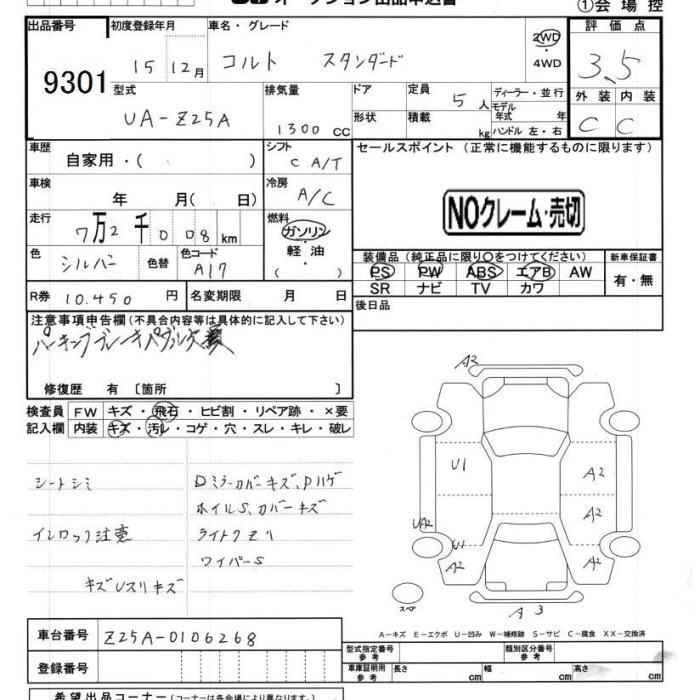 オークション出品申込書
①会場控
出品番号 初度登録年月 車名・グレード 評価点
9301
15年12月 コルト スタンダード 2WD 4WD 3.5
型式 排気量 ドア 定員 5人 ディーラー・並行 外装 内装
UA-Z25A 1300cc 形状 積載 kg モデル年式 年 ハンドル 左・右 C C
車歴 自家用・( ) シフト C A/T セールスポイント(正常に機能するものに限ります)
車検 年 月( 日) 冷房 A/C
NOクレーム・売切
走行 7万2千008km 燃料 ガソリン 軽油
色 シルバー 色替 色コード A17
装備品(純正品に限り〇をつけてください) 新車保証書
PS PW ABS エアB AW 有・無
SR ナビ TV カワ
R券 10.450円 名変期限 月 日 後日品
注意事項申告欄(不具合内容等は具体的に記入して下さい)
パーキングブレーキペダル欠
修復歴 有〔箇所 〕
検査員 FW キズ・飛石・ヒビ割・リペア跡・×要
記入欄 内装 キズ・汚レ・コゲ・穴・スレ・キレ・破レ
シートシミ Dミラーカバーキズ、Dハゲ
ホイルS、カバーキズ
イモロック注意 ライトクモリ
ワイパーS
キズUスリキズ
A2
U1 A2
UA2 A2
U1 A2 A2
スペア A3
A-キズ E-エクボ U-凹み W-補修跡 S-サビ C-腐食 XX-交換済
車台番号 Z25A-0106268
型式指定番号 参考 類別区分番号 参考
登録番号 車庫証明用 参考 長さ cm 幅 cm 高さ cm
希望出品コーナー(コーナーは各会場により異なります)